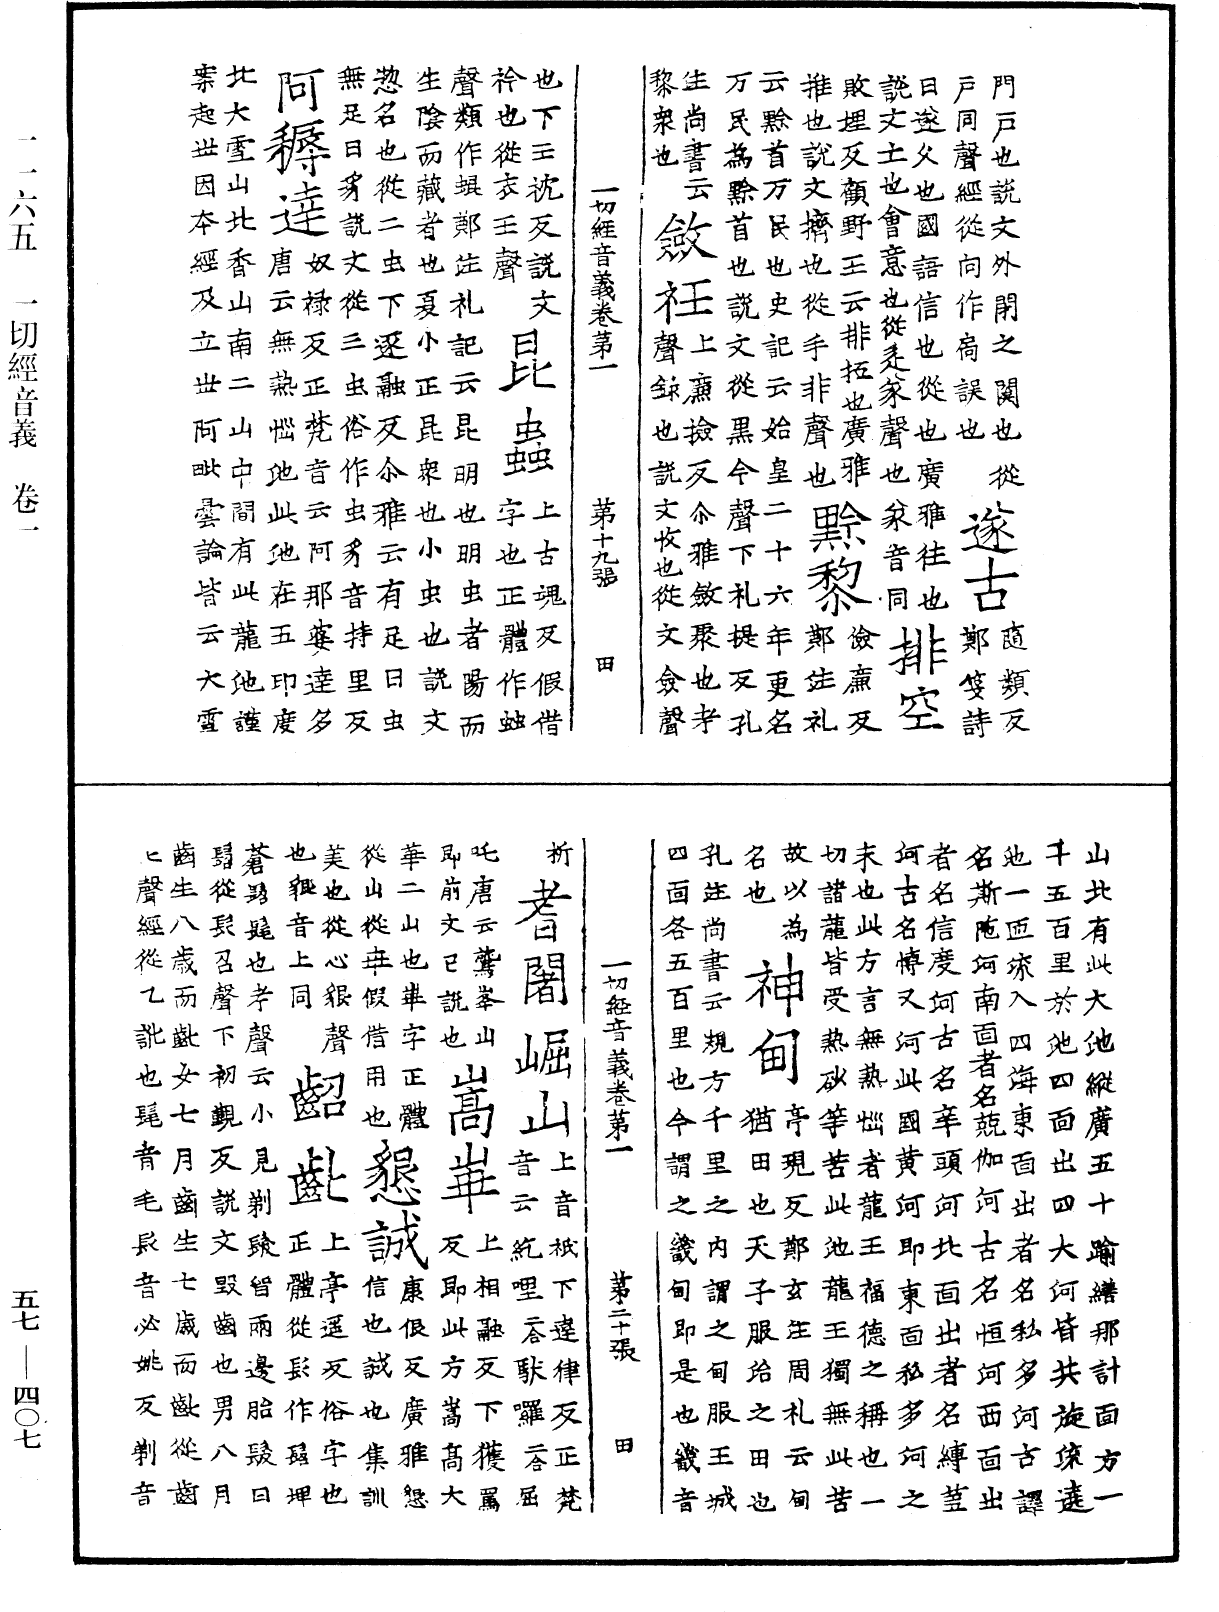 一一六五　一切經音義　卷一
門戸也説文外閉之關也從
戸同聲經從向作扄誤也
遂古
隨類反鄭箋詩
曰遂久也國語信也從也廣雅往也
説文士也會意也從辵㒸聲也㒸音同
排空
敗埋反顧野王云排抵也廣雅
推也説文擠也從手非聲也
黔黎
儉廉反鄭注礼
云黔首万民也史記云始皇二十六年更名
万民為黔首也説文從黒今聲下礼提反孔
注尚書云黎衆也
斂衽
上廉撿反尒雅斂聚也考
聲録也説文收也從文僉聲
一切經音義卷第一　第十九張　田
也下壬枕反説文
衿也從衣壬聲
昆蟲
上古魂反假借字也正體作䖵
聲類作蜫鄭注礼記云昆明也明虫者陽而
生陰而藏者也夏小正昆衆也小虫也説文
惣名也從二虫下逐融反尒雅云有足曰虫
無足曰豸説文從三虫俗作虫豸音持里反
阿耨達
奴禄反正梵音云阿那婆達多
唐云無熱惱池此池在五印度
北大雪山北香山南二山中間有此龍池謹
案起世因本經及立世阿毗曇論皆云大雪
山北有此大池縱廣五十踰繕那計面方一
千五百里於池四面出四大河皆共旋流遶
池一匝流入四海東面出者名私多河古譯
名斯陁河南面者名兢伽河古名恒河西面出
者名信度河古名辛頭河北面出者名縛蒭
河古名愽叉河此國黄河即東面私多河之
末也此方言無熱惱者龍王福德之稱也一
切諸龍皆受熱砂等苦此池龍王獨無此苦
故以為名也
神甸
亭現反鄭玄注周礼云甸
猶田也天子服治之田也
孔注尚書云規方千里之内謂之甸服王城
四面各五百里也今謂之畿甸即是也畿音
一切經音義卷第一　第二十張　田
祈
耆闍崛山
上音祇下達律反正梵
音云紇哩二合馱囉二合屈
吒唐云鷲峯山
即前文已説也
嵩華
上相融反下獲罵
反即此方嵩高大
華二山也崋字正體
從山從華假借用也
懇誠
康佷反廣雅懇
信也誠也集訓
美也從心豤聲
也豤音上同
齠齔
上亭遥反俗字也
正體從髟作髫埤
蒼髫髦也考聲云小見剃髮留兩邊胎髮曰
髫從髟召聲下初覲反説文毀齒也男八月
齒生八歳而齔女七月齒生七歳而齔從齒
匕聲經從乙訛也髦音毛髟音必姚反剃音
五七—四〇七